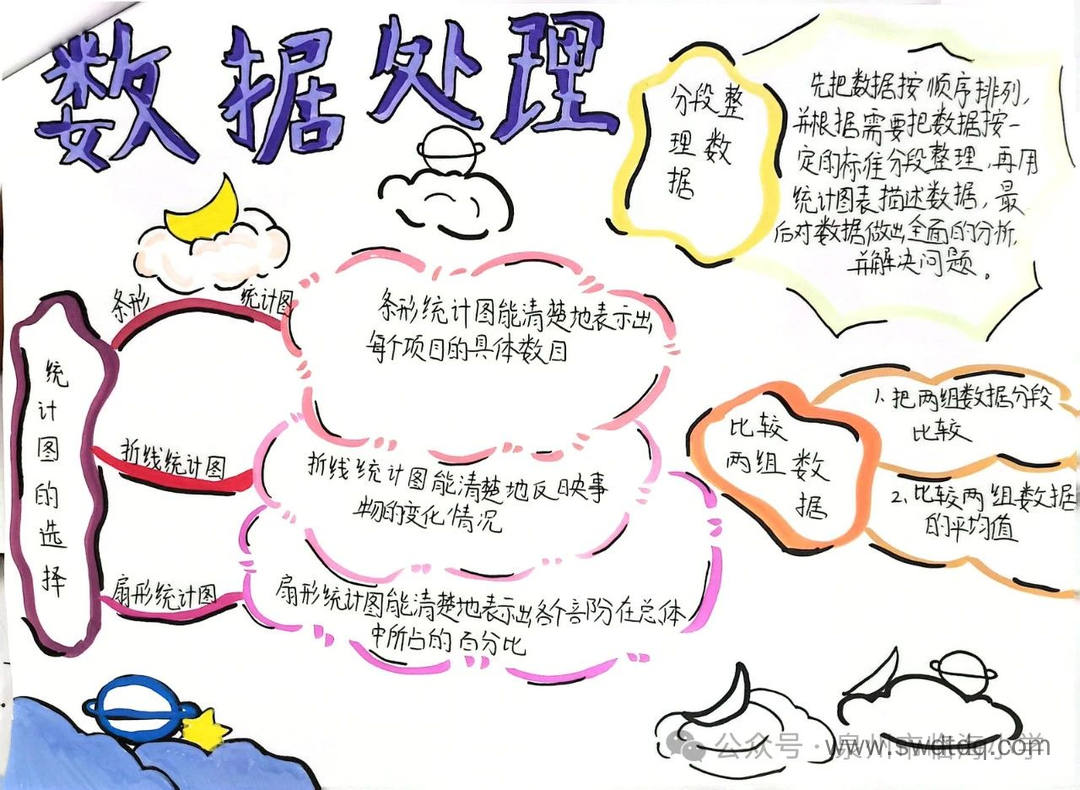 数据处理
分段整
理数
据
先把数据按顺序排列,
并根据需要把数据按一
定的标准分段整理,再用
统计图表描述数据,最
后对数据做出全面的分析,
并解决问题。
统计图的选择
条形 统计图
条形统计图能清楚地表示出
每个项目的具体数目
折线统计图
折线统计图能清楚地反映事
物的变化情况
扇形统计图
扇形统计图能清楚地表示出各个部份在总体
中所占的百分比
比较
两组数
据
1、把两组数据分段
比较
2、比较两组数据
的平均值
公众号·泉州市临海小学
www.swdtdq.com